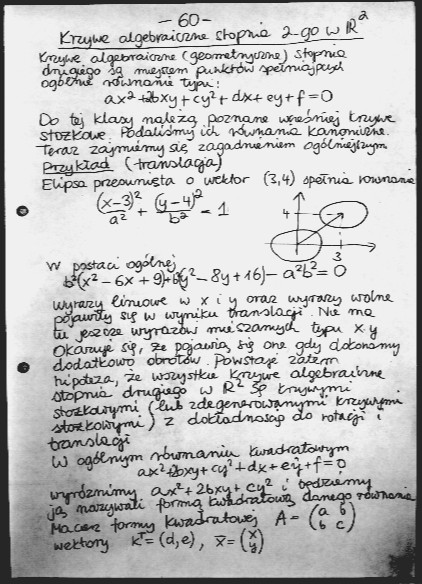 - 60 -
Krzywe algebraiczne stopnia 2-go w ℝ²
Krzywe algebraiczne (geometryczne) stopnia
drugiego są miejscem punktów spełniających
ogólne równanie typu:
ax² + 2bxy + cy² + dx + ey + f = 0
Do tej klasy należą poznane wcześniej krzywe
stożkowe. Podaliśmy ich równania kanoniczne.
Teraz zajmiemy się zagadnieniem ogólniejszym
Przykład (translacja)
Elipsa przesunięta o wektor (3,4) spełnia równanie
(x-3)²/a² + (y-4)²/b² = 1
4
3
W postaci ogólnej
b²(x² - 6x + 9) + a²(y² - 8y + 16) - a²b² = 0
Wyrazy liniowe w x i y oraz wyrazy wolne
pojawiły się w wyniku translacji. Nie ma
tu jeszcze wyrazów mieszanych typu x·y
Okazuje się, że pojawią się one gdy dokonamy
dodatkowo obrotów. Powstaje zatem
hipoteza, że wszystkie krzywe algebraiczne
stopnia drugiego w ℝ² są krzywymi
stożkowymi (lub zdegenerowanymi krzywymi
stożkowymi) z dokładnością do rotacji i
translacji
W ogólnym równaniu kwadratowym
ax² + 2bxy + cy² + dx + ey + f = 0
wyróżnimy ax² + 2bxy + cy² i będziemy
ją nazywali formą kwadratową danego równania
Macierz formy kwadratowej A = (a b
b c)
wektory kᵀ = (d,e), x̄ = (x
y)